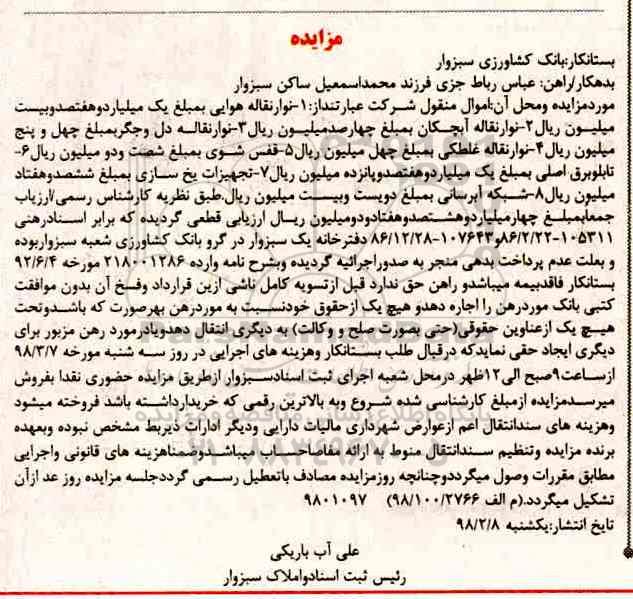 مزایده
بستانکار:بانک کشاورزی سبزوار
بدهکار/راهن: عباس رباط جزی فرزند محمداسمعیل ساکن سبزوار
موردمزایده ومحل آن:اموال منقول شرکت عبارتنداز:۱-نوارنقاله هوایی بمبلغ یک میلیاردوهفتصدوبیست
میلیون ریال۲-نوارنقاله آبچکان بمبلغ چهارصدمیلیون ریال۳-نوارنقاله دل وجگربمبلغ چهل و پنج
میلیون ریال۴-نوارنقاله غلطکی بمبلغ چهل میلیون ریال۵-قفس شوی بمبلغ شصت ودو میلیون ریال۶-
تابلوبرق اصلی بمبلغ یک میلیاردوهفتصدوپانزده میلیون ریال۷-تجهیزات یخ سازی بمبلغ ششصدوهفتاد
میلیون ریال۸-شبکه آبرسانی بمبلغ دویست وبیست میلیون ریال.طبق نظریه کارشناس رسمی/ارزیاب
جمعابمبلغ چهارمیلیاردوهشتصدوهفتادودومیلیون ریال ارزیابی قطعی گردیده که برابر اسنادرهنی
۱۰۵۳۱۱-۸۶/۲/۲۲و۱۰۷۶۴۳-۸۶/۱۲/۲۸ دفترخانه یک سبزوار در گرو بانک کشاورزی شعبه سبزواربوده
و بعلت عدم پرداخت بدهی منجر به صدوراجرائیه گردیده وبشرح نامه وارده ۲۱۸۰۰۱۲۸۶ مورخه ۹۲/۶/۴
بستانکار فاقدبیمه میباشدو راهن حق ندارد قبل ازتسویه کامل ناشی ازین قرارداد وفسخ آن بدون موافقت
کتبی بانک موردرهن را اجاره دهدو هیچ یک ازحقوق خودنسبت به موردرهن بهرصورت که باشدوتحت
هیچ یک ازعناوین حقوقی(حتی بصورت صلح و وکالت) به دیگری انتقال دهدویادرمورد رهن مزبور برای
دیگری ایجاد حقی نمایدکه درقبال طلب بستانکار وهزینه های اجرایی در روز سه شنبه مورخه ۹۸/۳/۷
ازساعت۹صبح الی۱۲ظهر درمحل شعبه اجرای ثبت اسنادسبزوار ازطریق مزایده حضوری نقدا بفروش
میرسدمزایده ازمبلغ کارشناسی شده شروع وبه بالاترین رقمی که خریدارداشته باشد فروخته میشود
وهزینه های سندانتقال اعم ازعوارض شهرداری مالیات دارایی ودیگر ادارات ذیربط مشخص نبوده وبعهده
برنده مزایده وتنظیم سندانتقال منوط به ارائه مفاصاحساب میباشدوضمناهزینه های قانونی واجرایی
مطابق مقررات وصول میگرددوچنانچه روزمزایده مصادف باتعطیل رسمی گرددجلسه مزایده روز عد ازآن
تشکیل میگردد.(م الف ۹۸/۱۰۰/۲۷۶۶) ۹۸۰۱۰۹۷
تایخ انتشار:یکشنبه ۹۸/۲/۸
علی آب باریکی
رئیس ثبت اسنادواملاک سبزوار